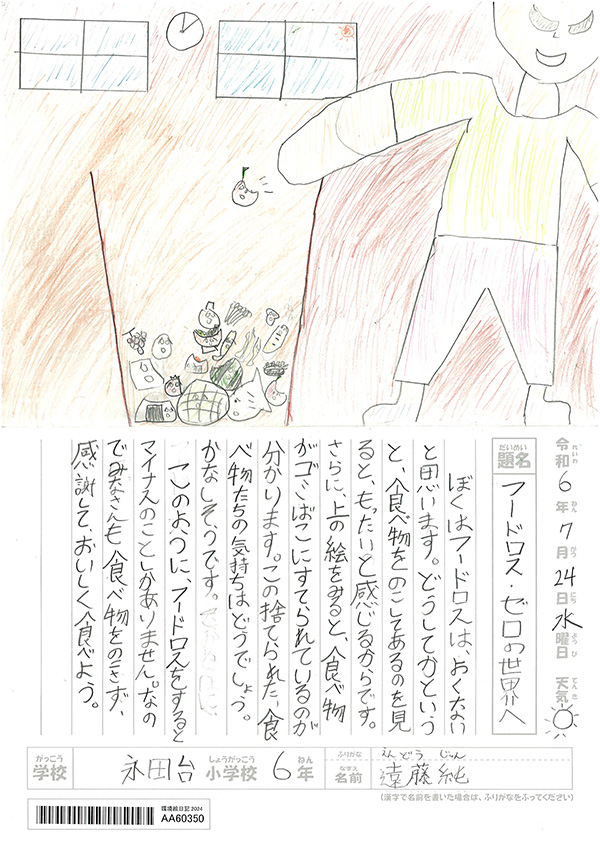 令和6年7月24日水曜日 天気
れいわ ねん がつ にち ようび てんき
だいめい
題名 フードロス・ゼロの世界へ
ぼくはフードロスは、おくない
と思います。どうしてかという
と、食べ物をのこしてあるのを見
ると、もったいと感じるからです。
さらに、上の絵をみると、食べ物
がゴミばこにすてられているのが
分かります。この捨てられた、食
べ物たちの気持ちはどうでしょう。
かなしそうです。
このように、フードロスをすると
マイナスのことしかありません。なの
でみなさんも食べ物をのこさず、
感謝して、おいしく食べよう。
がっこう しょうがっこう ねん
学校 永田台小学校 6年
ふりがな えんどう じゅん
なまえ
名前 遠藤純
(漢字で名前を書いた場合は、ふりがなをふってください)
環境絵日記2024
AA60350